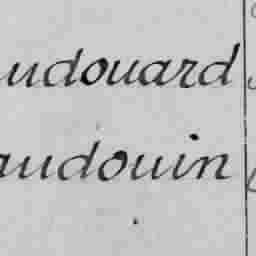 udouard
audouin